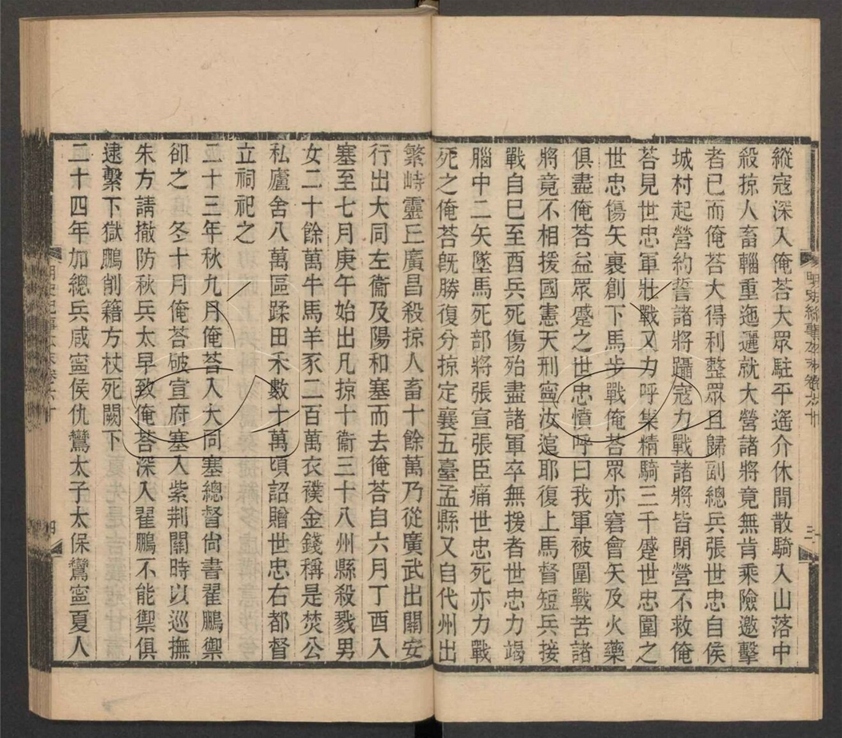 縱寇深入俺荅大眾駐平遙介休閒散騎入山落中
殺掠人畜輜重迤邐就大營諸將竟無肯乘險邀擊
者已而俺荅大得利整眾且歸副總兵張世忠自侯
城村起營約誓諸將躡寇力戰諸將皆閉營不救俺
荅見世忠軍壯戰又力呼集精騎三千蹙世忠圍之
世忠傷矢裹創下馬步戰俺荅眾亦窘會矢及火藥
俱盡俺荅益眾蹙之世忠憤呼曰我軍被圍戰苦諸
將竟不相援國憲天刑寧汝逭耶復上馬督短兵接
戰自巳至酉兵死傷殆盡諸軍卒無援者世忠力竭
腦中二矢墜馬死部將張宣張臣痛世忠死亦力戰
死之俺荅旣勝復分掠定襄五臺孟縣又自代州出
三
繁峙靈丘廣昌殺掠人畜十餘萬乃從廣武出關安
行出大同左衞及陽和塞而去俺荅自六月丁酉入
塞至七月庚午始出凡掠十衞三十八州縣殺戮男
女二十餘萬牛馬羊豕二百萬衣襆金錢稱是焚公
私廬舍八萬區蹂田禾數十萬頃詔贈世忠右都督
立祠祀之
二十三年秋九月俺荅入大同塞總督尙書翟鵬禦
卻之 冬十月俺荅破宣府塞入紫荆關時以巡撫
朱方請撤防秋兵太早致俺荅深入翟鵬不能禦俱
逮繫下獄鵬削籍方杖死闕下
二十四年加總兵咸寧侯仇鸞太子太保鸞寧夏人
四